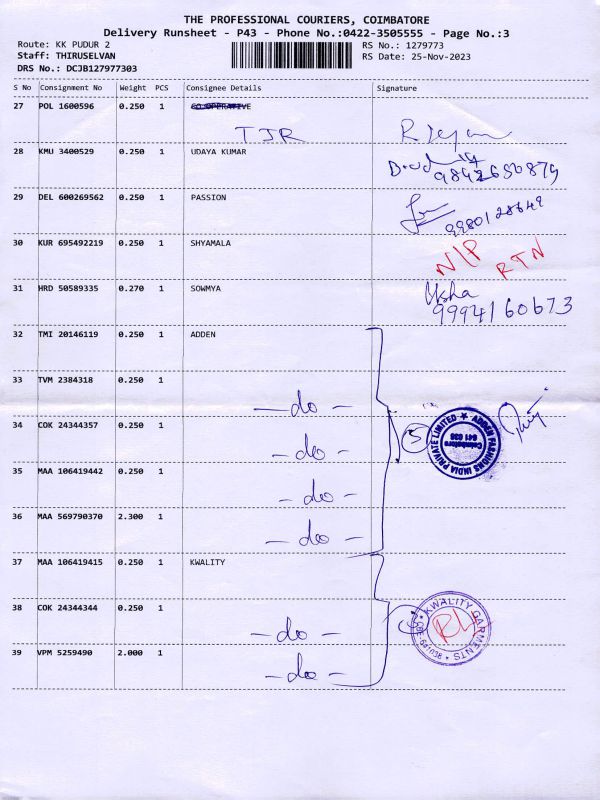 THE PROFESSIONAL COURIERS, COIMBATORE
Delivery Runsheet - P43 - Phone No.:0422-3505555 - Page No.:3
Route: KK PUDUR 2 RS No.: 1279773
Staff: THIRUSELVAN RS Date: 25-Nov-2023
DRS No.: DCJB127977303
S No Consignment No Weight PCS Consignee Details Signature
27 POL 1600596 0.250 1 CO OPERATIVE
TJR
28 KMU 3400529 0.250 1 UDAYA KUMAR
9842650879
29 DEL 600269562 0.250 1 PASSION
9980128649
30 KUR 695492219 0.250 1 SHYAMALA
N/P RTN
31 HRD 50589335 0.270 1 SOWMYA Usha
9994160673
32 TMI 20146119 0.250 1 ADDEN
33 TVM 2384318 0.250 1
- do -
34 COK 24344357 0.250 1 5 ADDEN FASHIONS INDIA PRIVATE LIMITED ★ Coimbatore 641 038
- do -
35 MAA 106419442 0.250 1
- do -
36 MAA 569790370 2.300 1
- do -
37 MAA 106419415 0.250 1 KWALITY
38 COK 24344344 0.250 1 KWALITY GARMENTS * CBE-641038 *
- do -
39 VPM 5259490 2.000 1
- do -